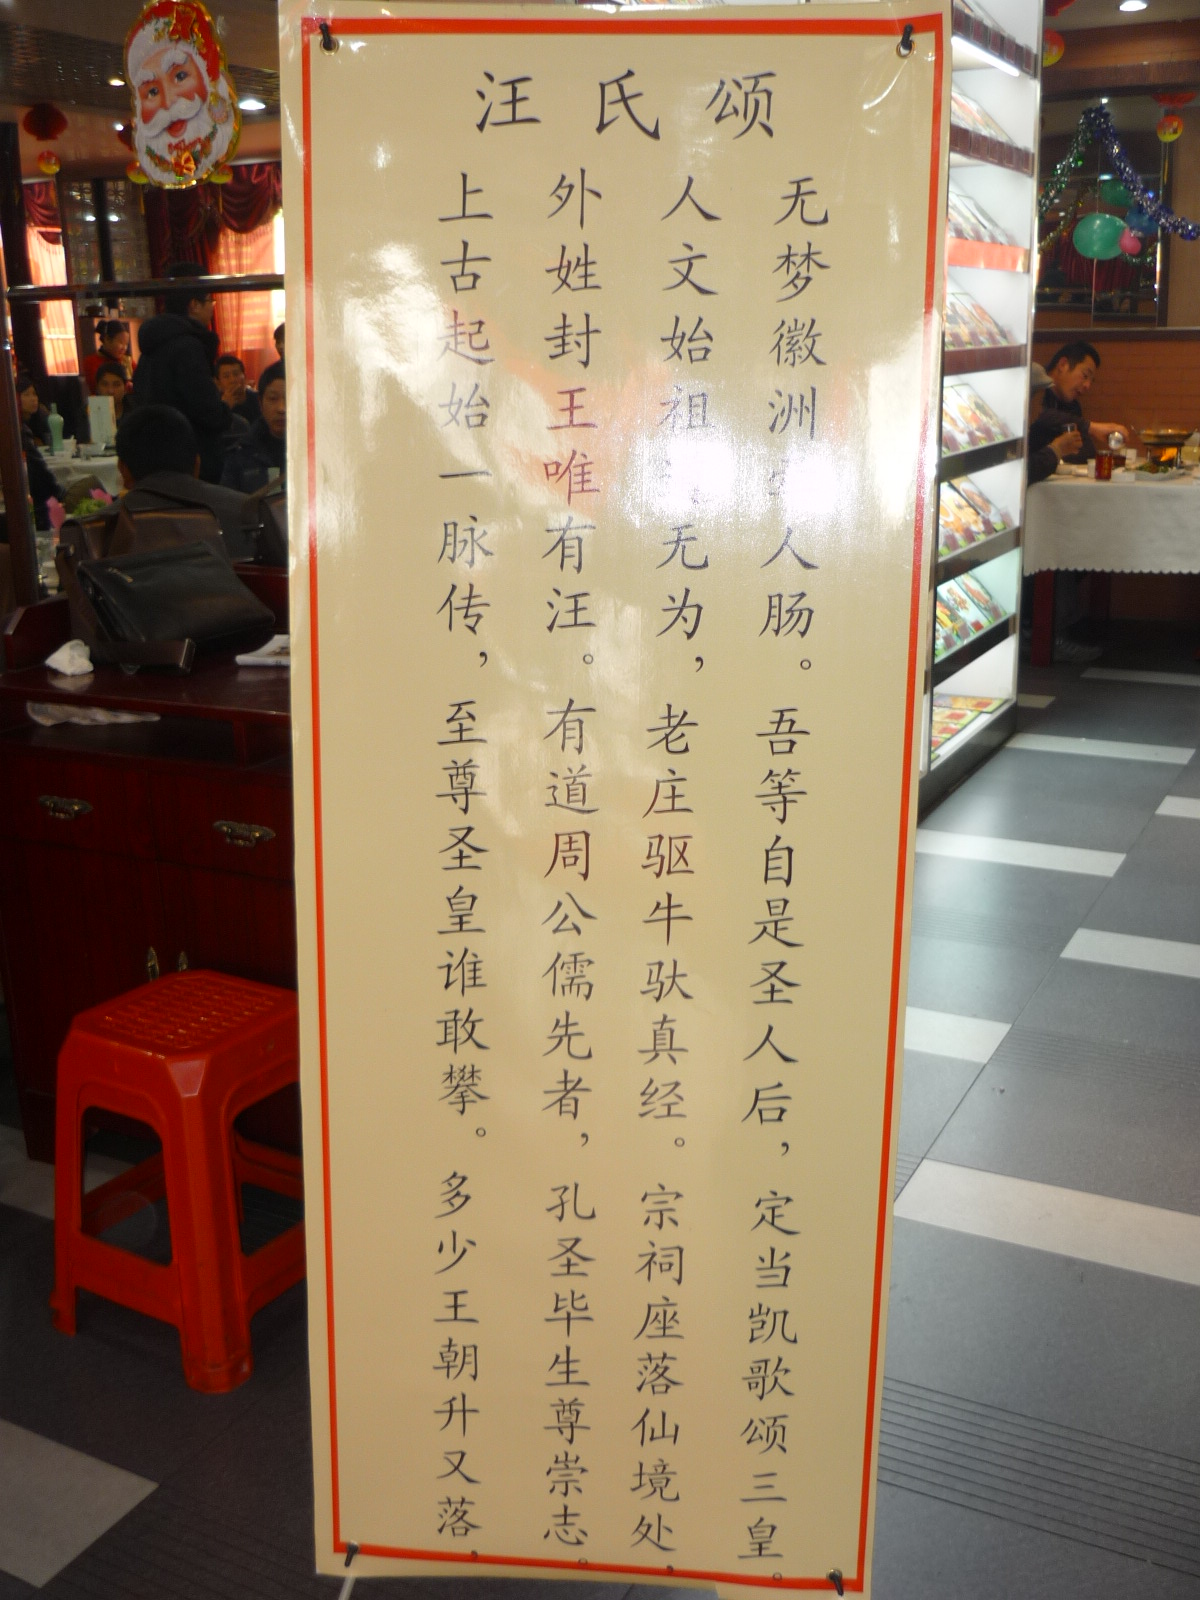 汪氏颂
上古起始一脉传，至尊圣皇谁敢攀。多少王朝升又落，
外姓封王唯有汪。有道周公儒先者，孔圣毕生尊崇志。
人文始祖无为，老庄驱牛驮真经。宗祠座落仙境处，
无梦徽洲人肠。吾等自是圣人后，定当凯歌颂三皇。